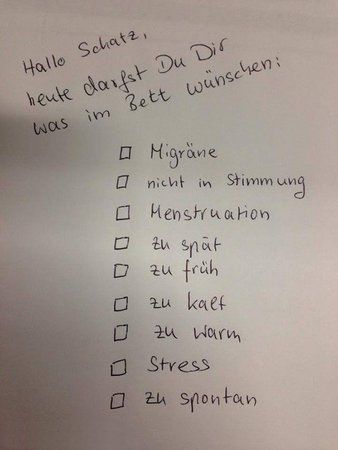 Hallo Schatz,
heute darfst Du Dir
was im Bett wünschen:
☐ Migräne
☐ nicht in Stimmung
☐ Menstruation
☐ zu spät
☐ zu früh
☐ zu kalt
☐ zu warm
☐ Stress
☐ zu spontan